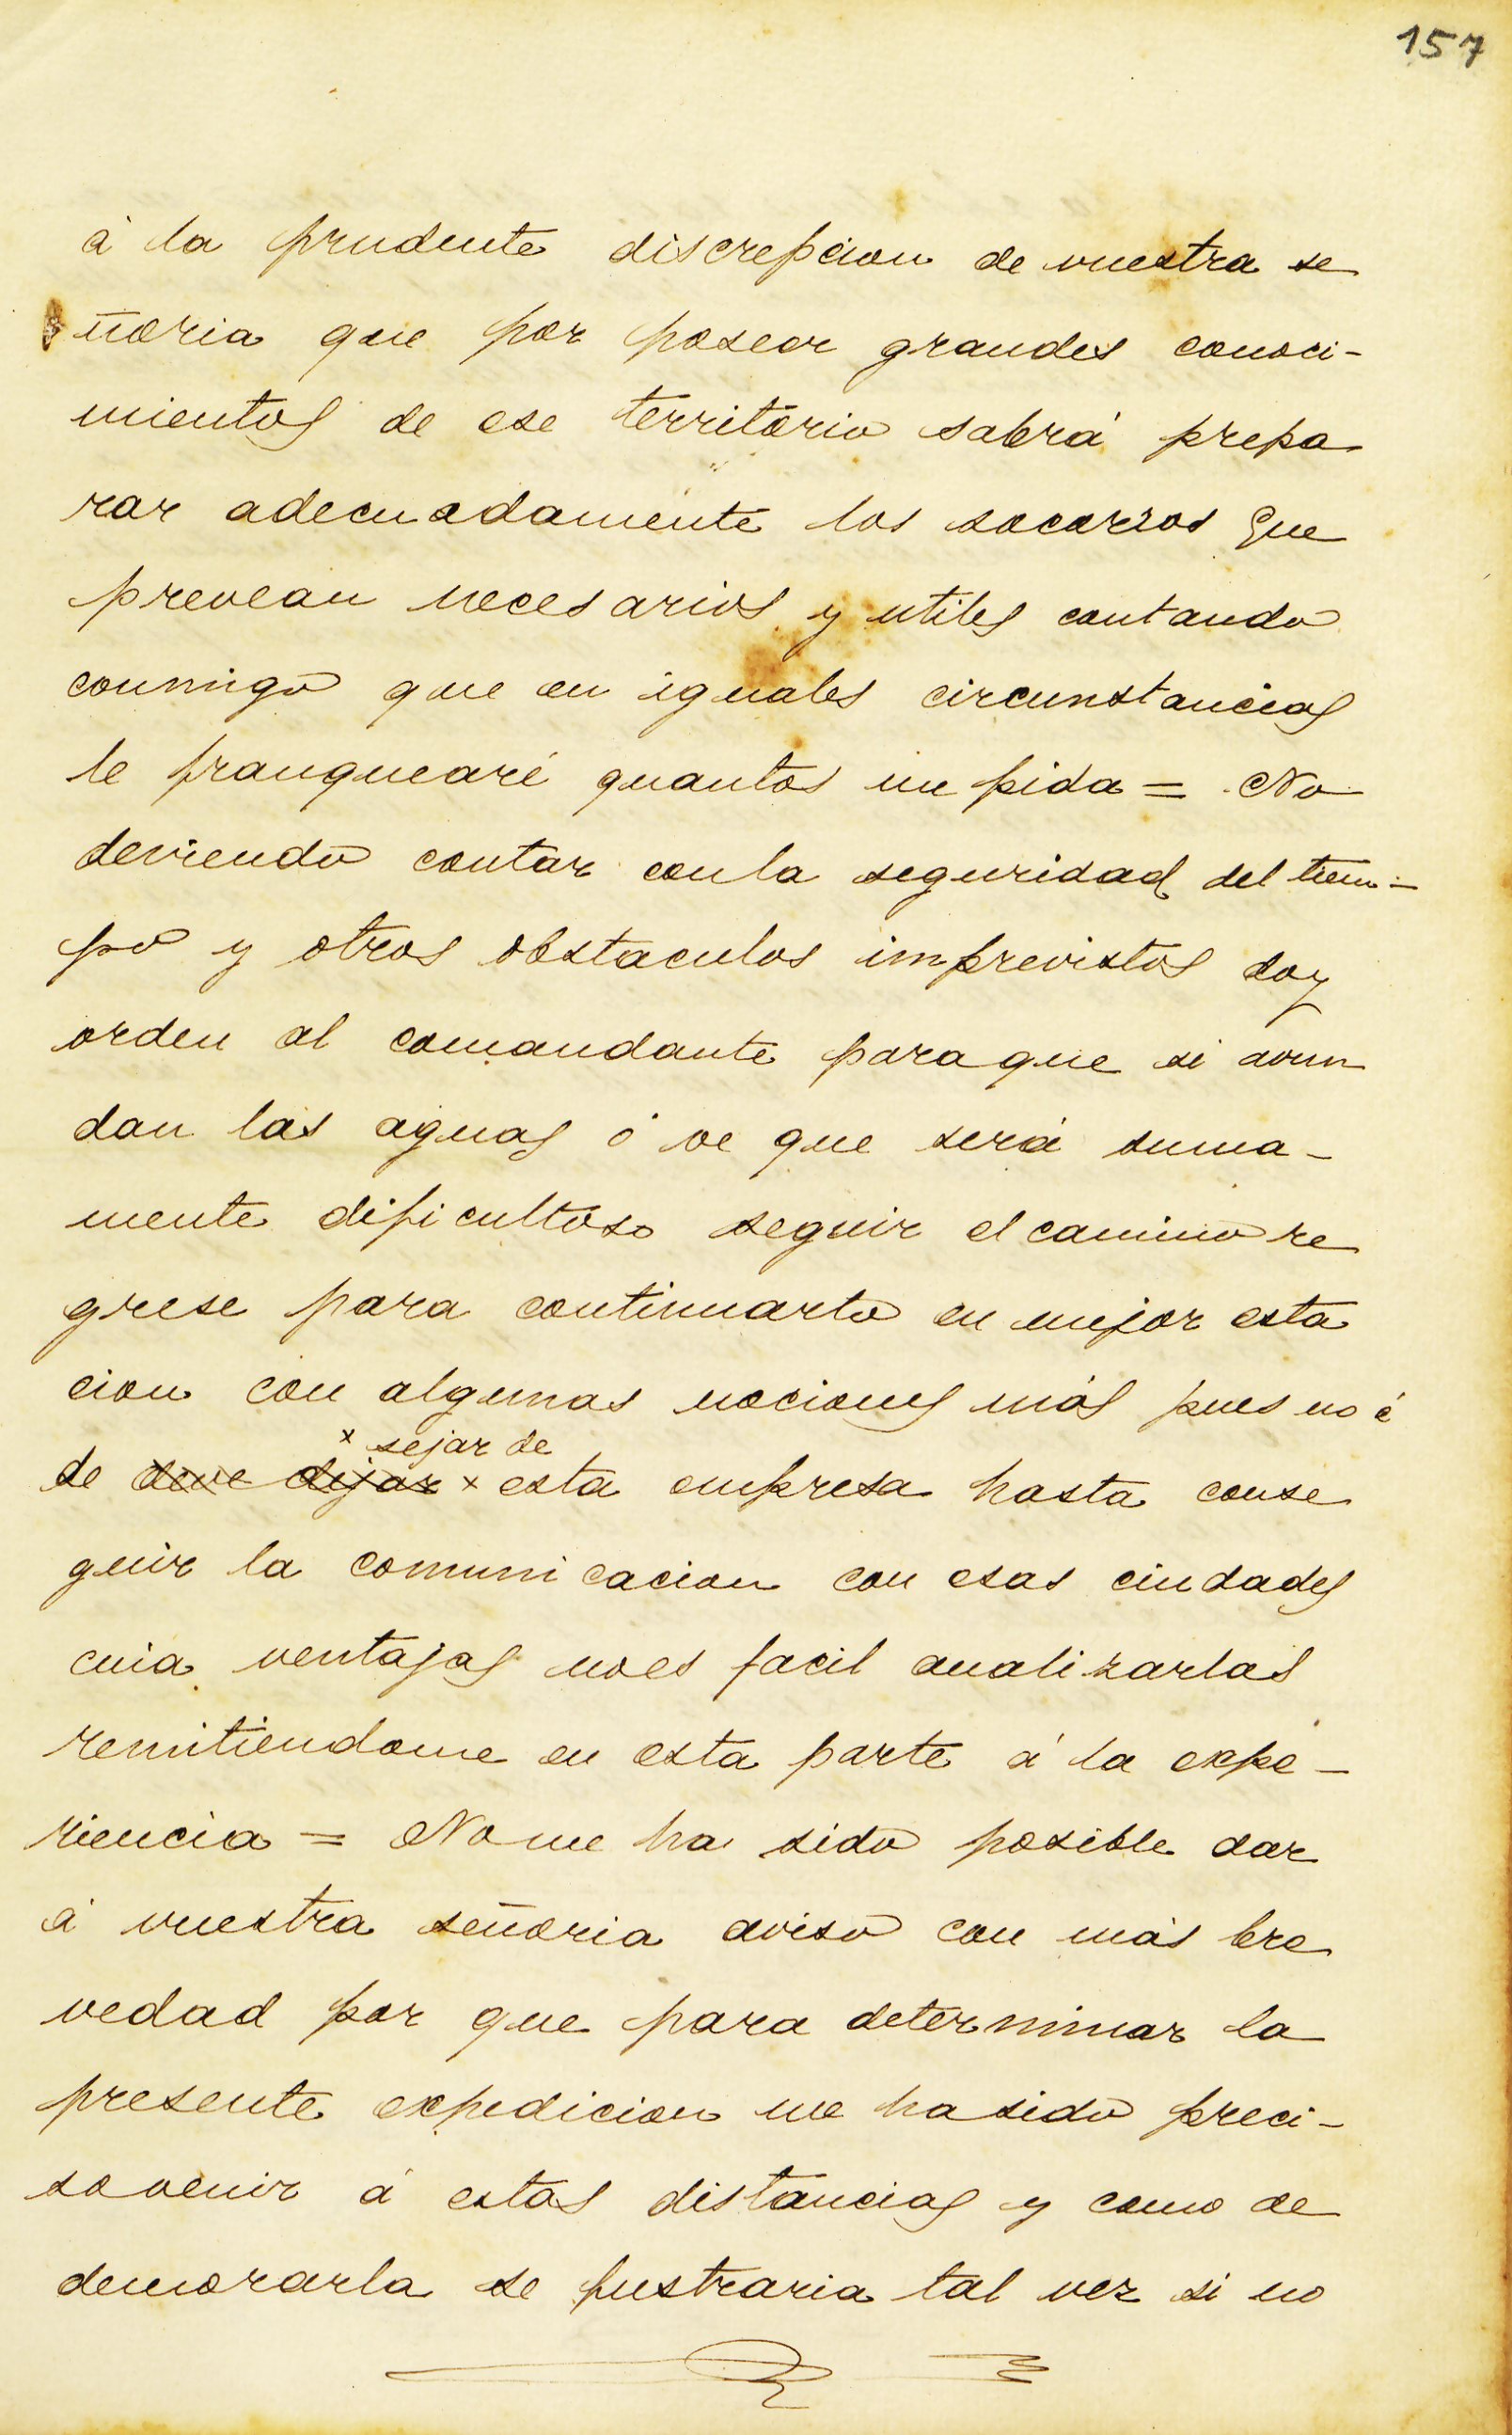 157
á la prudente discrepcion de vuestra se
ñoria que por poseer grandes conoci-
mientos de ese territorio sabrá prepa
rar adecuadamente los socorros que
prevean necesarios y utiles contando
conmigo que en iguales circunstancias
le franquearé quantos me pida = No
deviendo contar con la seguridad del tiem-
po y otros obstaculos imprevistos doy
orden al comandante para que si avun
dan las aguas ó ve que será suma-
mente dificultoso seguir el camino re
grese para continuarlo en mejor esta
cion con algunas nociones más pues no é
x sejar de
de deve dijar x esta empresa hasta conse
guir la comunicacion con esas ciudades
cuia ventajas no es facil analizarlas
remitiendome en esta parte á la expe-
riencia = No me ha sido posible dar
á vuestra señoria aviso con más bre
vedad por que para determinar la
presente expedicion me ha sido preci-
so venir á estas distancias y como de
demorarla se frustraria tal vez si no